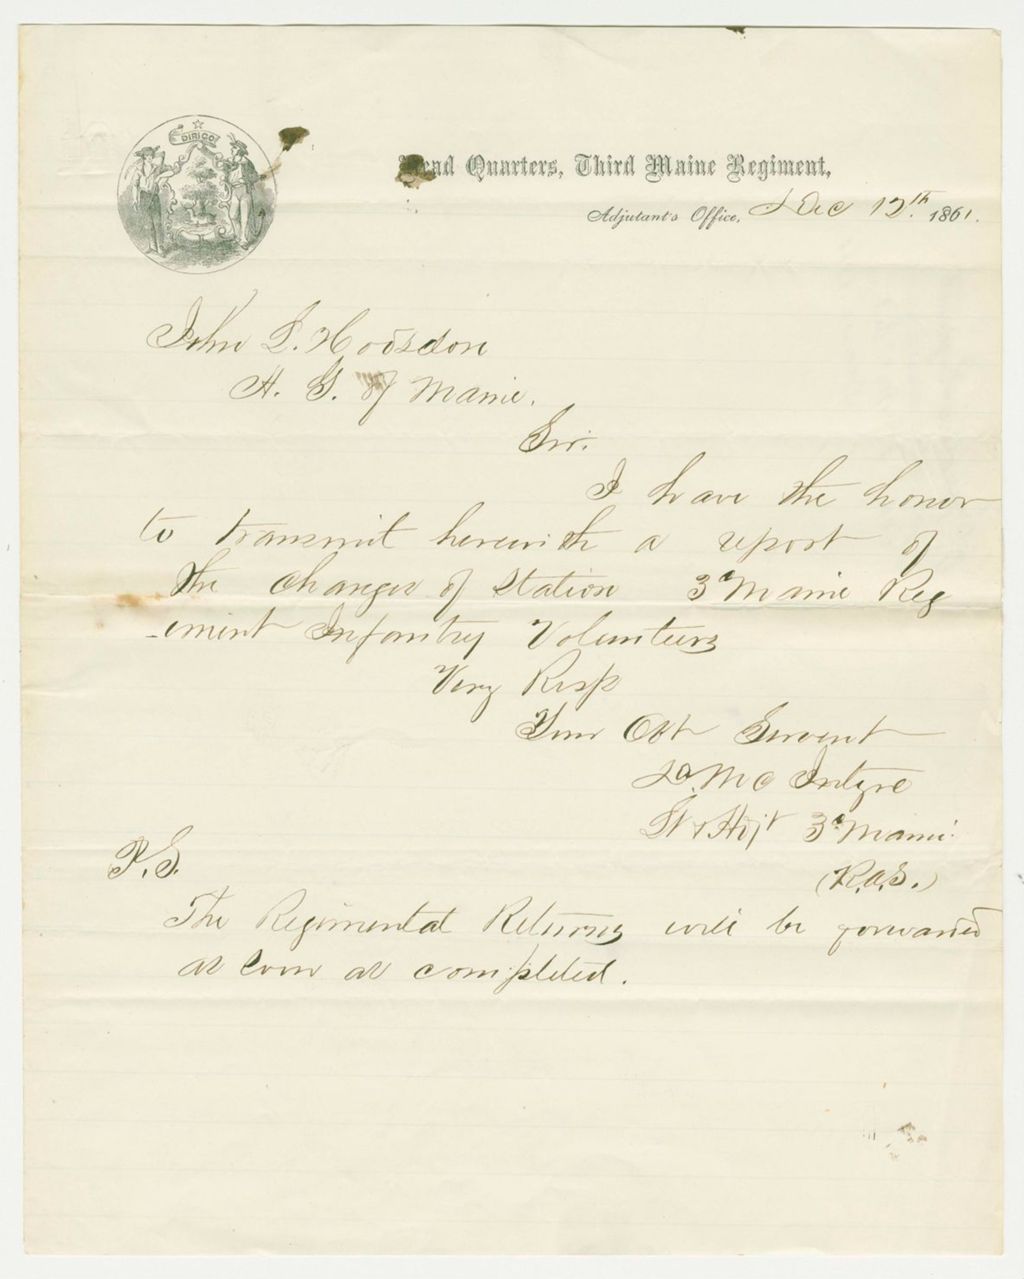 DIRIGO
Head Quarters, Third Maine Regiment,
Adjutant's Office, Dec 12th. 1861.
John L. Hodsdon
A. G. of Maine.
Sir:
I have the honor
to transmit herewith a report of
the changes of Station 3d Maine Reg
-ement Infantry Volunteers
Very Resp
Your Obt Servent
McIntyre
Lt & Adjt 3d Maine
P.S.
The Regimental Returns will be forwarded
as soon as completed.